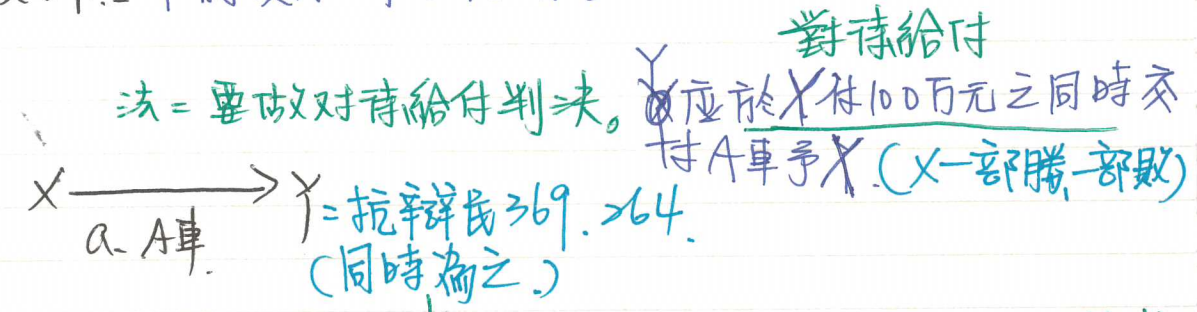 對待給付
法=要做对待給付判決。Y应於X付100万元之同時交
付A車予X.(X一部勝、一部敗)
X → Y=抗辯民369.264.
a. A車.
(同時為之.)